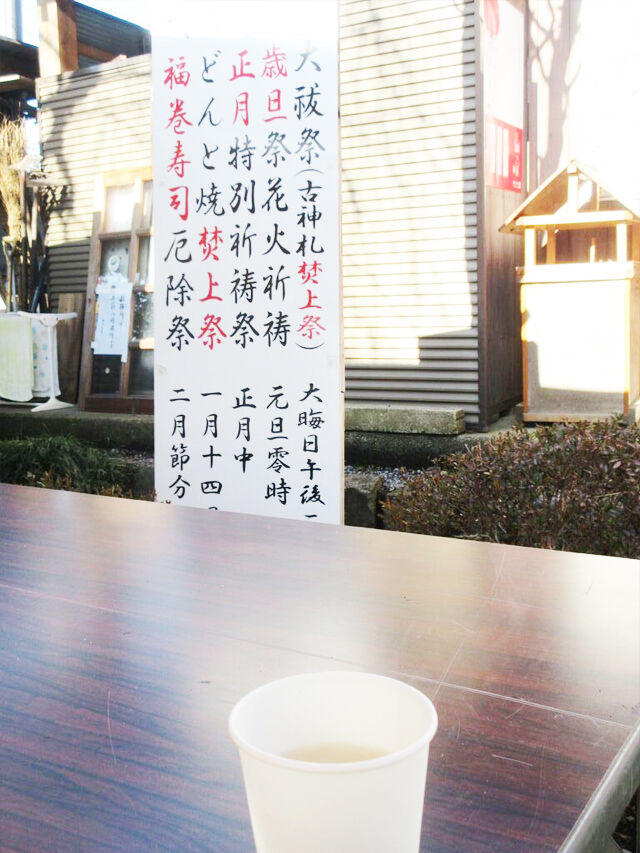 大祓祭(古神札焚上祭) 大晦日午後
歳旦祭花火祈祷 元旦零時
正月特別祈祷祭 正月中
どんと焼焚上祭 一月十四
福巻寿司厄除祭 二月節分